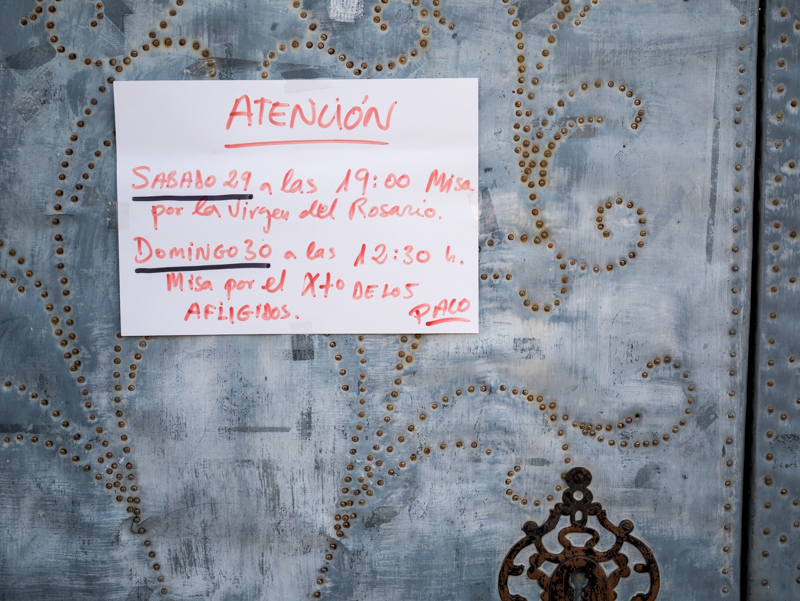 ATENCIÓN
SABADO 29 a las 19:00 Misa
por la Virgen del Rosario.
DOMINGO 30 a las 12:30 h.
Misa por el Xto DE LOS
AFLIGIDOS.
PACO